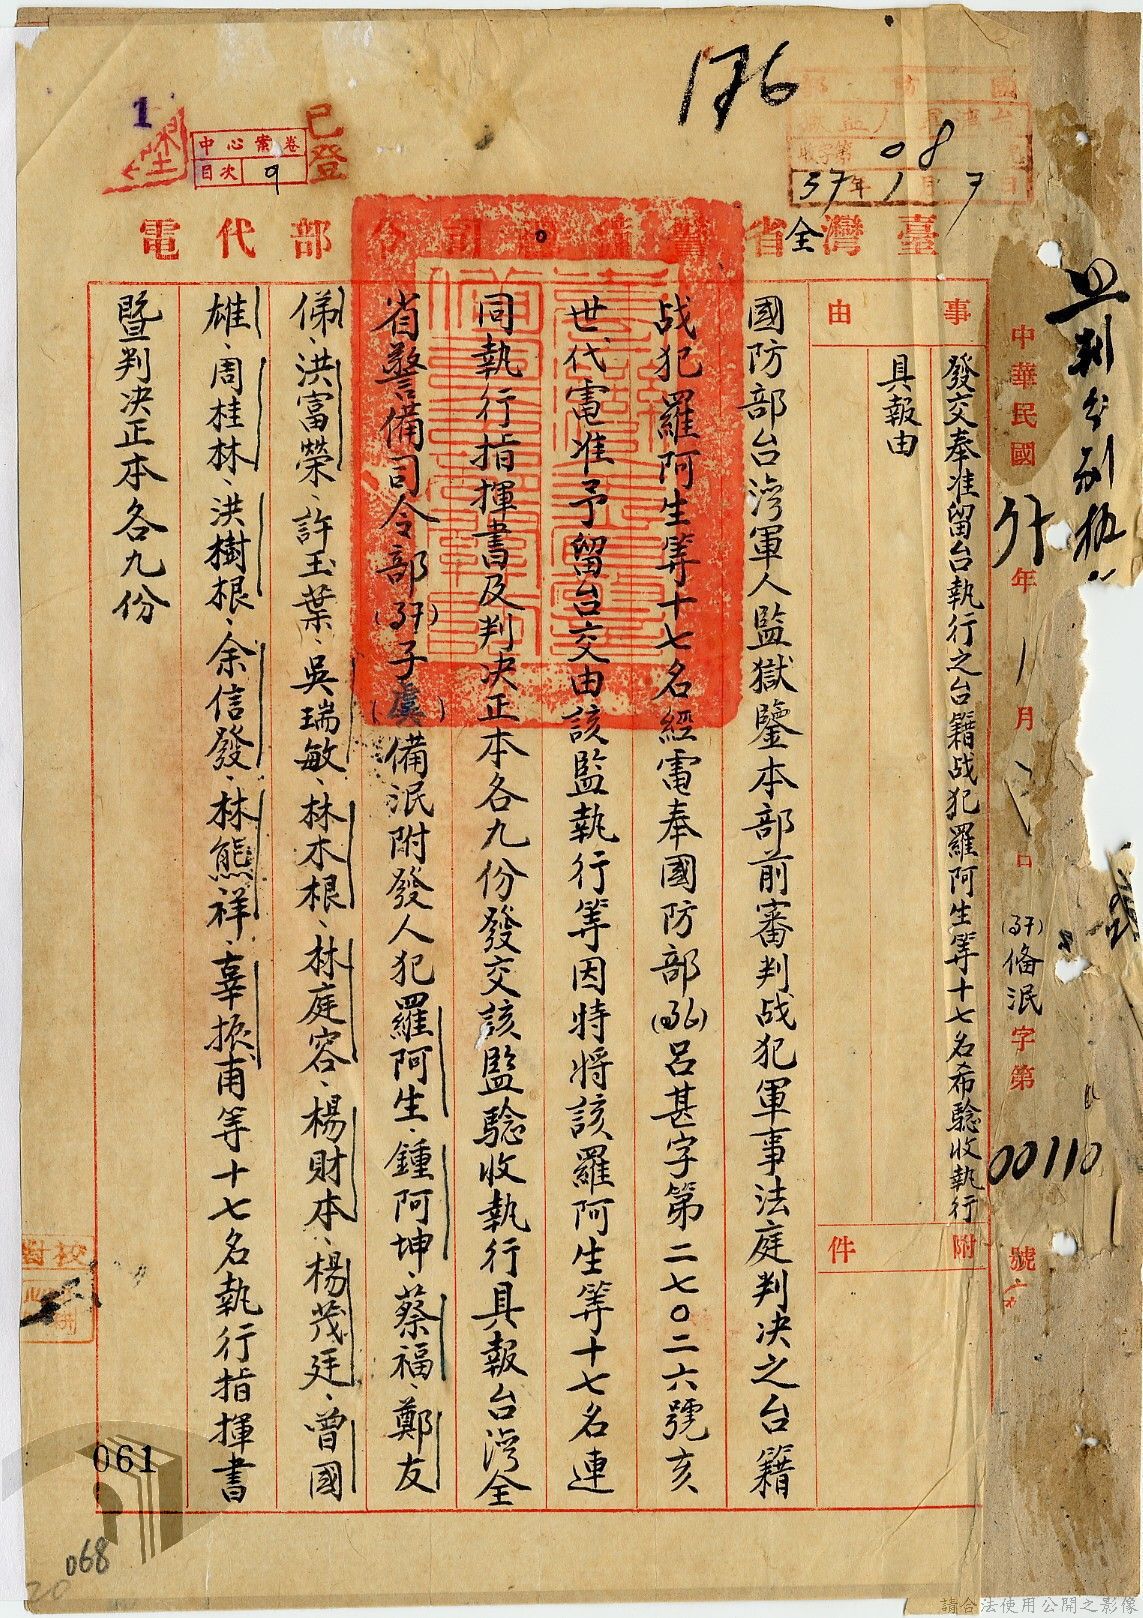 136
國防部
台灣軍人監獄
收字第 08
37年1月7日
1
已登
中心案卷
目次 9
臺灣全省警備司令部代電
中華民國 年1月 日
(37)備泯字第00110號
事由
發交奉准留台執行之台籍战犯羅阿生等十七名希騐收執行
具報由
附件
國防部台灣軍人監獄鑒本部前審判战犯軍事法庭判决之台籍
战犯羅阿生等十七名經電奉國防部(36)呂甚字第二七〇二六號亥
世代電准予留台交由該監執行等因特將該羅阿生等十七名連
同執行指揮書及判决正本各九份發交該監騐收執行具報台灣全
省警備司令部(37)子(虞)備泯附發人犯羅阿生、鍾阿坤、蔡福、鄭友
俤、洪富榮、許玉葉、吳瑞敏、林木根、林庭容、楊財本、楊茂廷、曾國
雄、周桂林、洪樹根、余信發、林熊祥、辜振甫等十七名執行指揮書
暨判决正本各九份
校對
061
068
20
請合法使用公開之影像